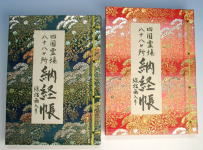 四国霊場
八十八ヶ所
納経帳
四国霊場
八十八ヶ所
納経帳